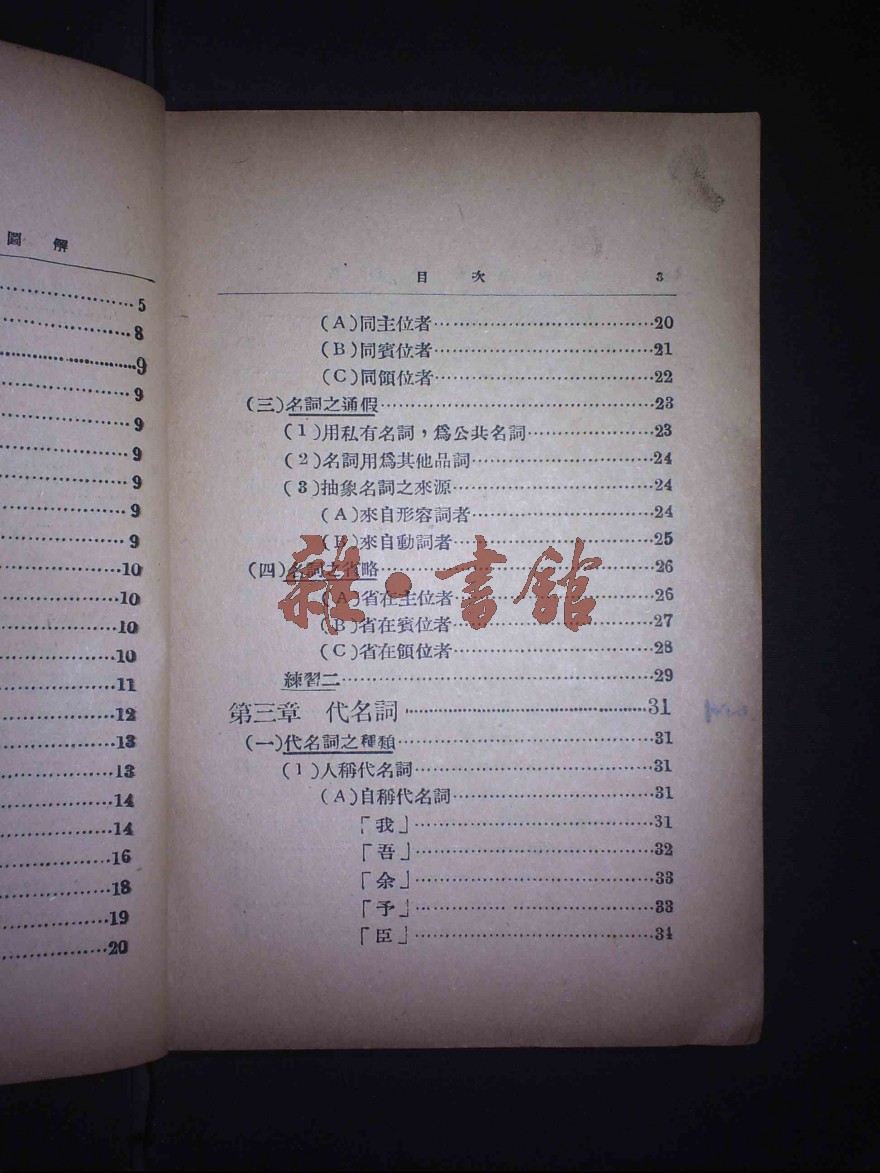 圖解
5
8
9
9
9
9
9
9
9
10
10
10
10
11
12
13
13
14
14
16
18
19
20
目次 3
(A)同主位者……20
(B)同賓位者……21
(C)同領位者……22
(三)名詞之通假……23
(1)用私有名詞，爲公共名詞……23
(2)名詞用爲其他品詞……24
(3)抽象名詞之來源……24
(A)來自形容詞者……24
(B)來自動詞者……25
(四)名詞之省略……26
(A)省在主位者……26
(B)省在賓位者……27
(C)省在領位者……28
練習二……29
第三章 代名詞……31
(一)代名詞之種類……31
(1)人稱代名詞……31
(A)自稱代名詞……31
「我」……31
「吾」……32
「余」……33
「予」……33
「臣」……34
雜·書館